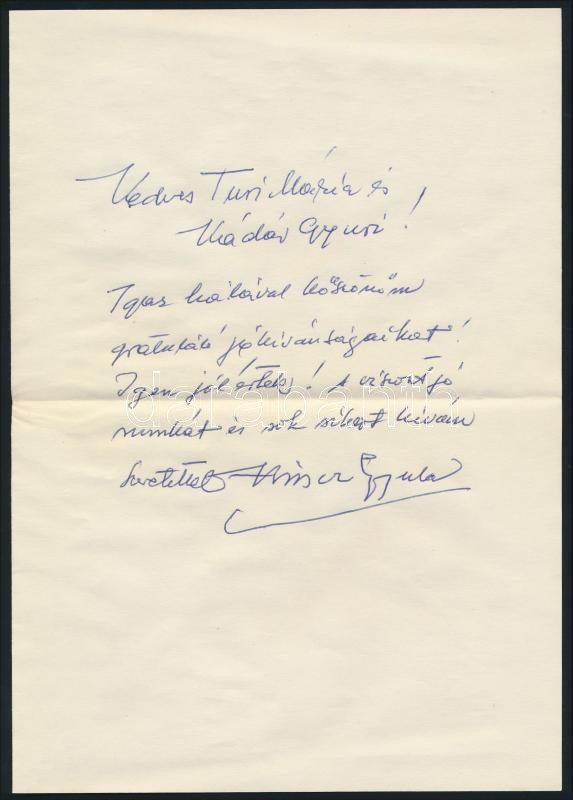 Kedves Turi Mária és
Kádár Gyuri!
Igaz hálával köszönöm
gratuláló jókivánságaikat!
Igen jól estek! A viszont jó
munkát és sok sikert kíván
Szeretettel Gyula
darabanth